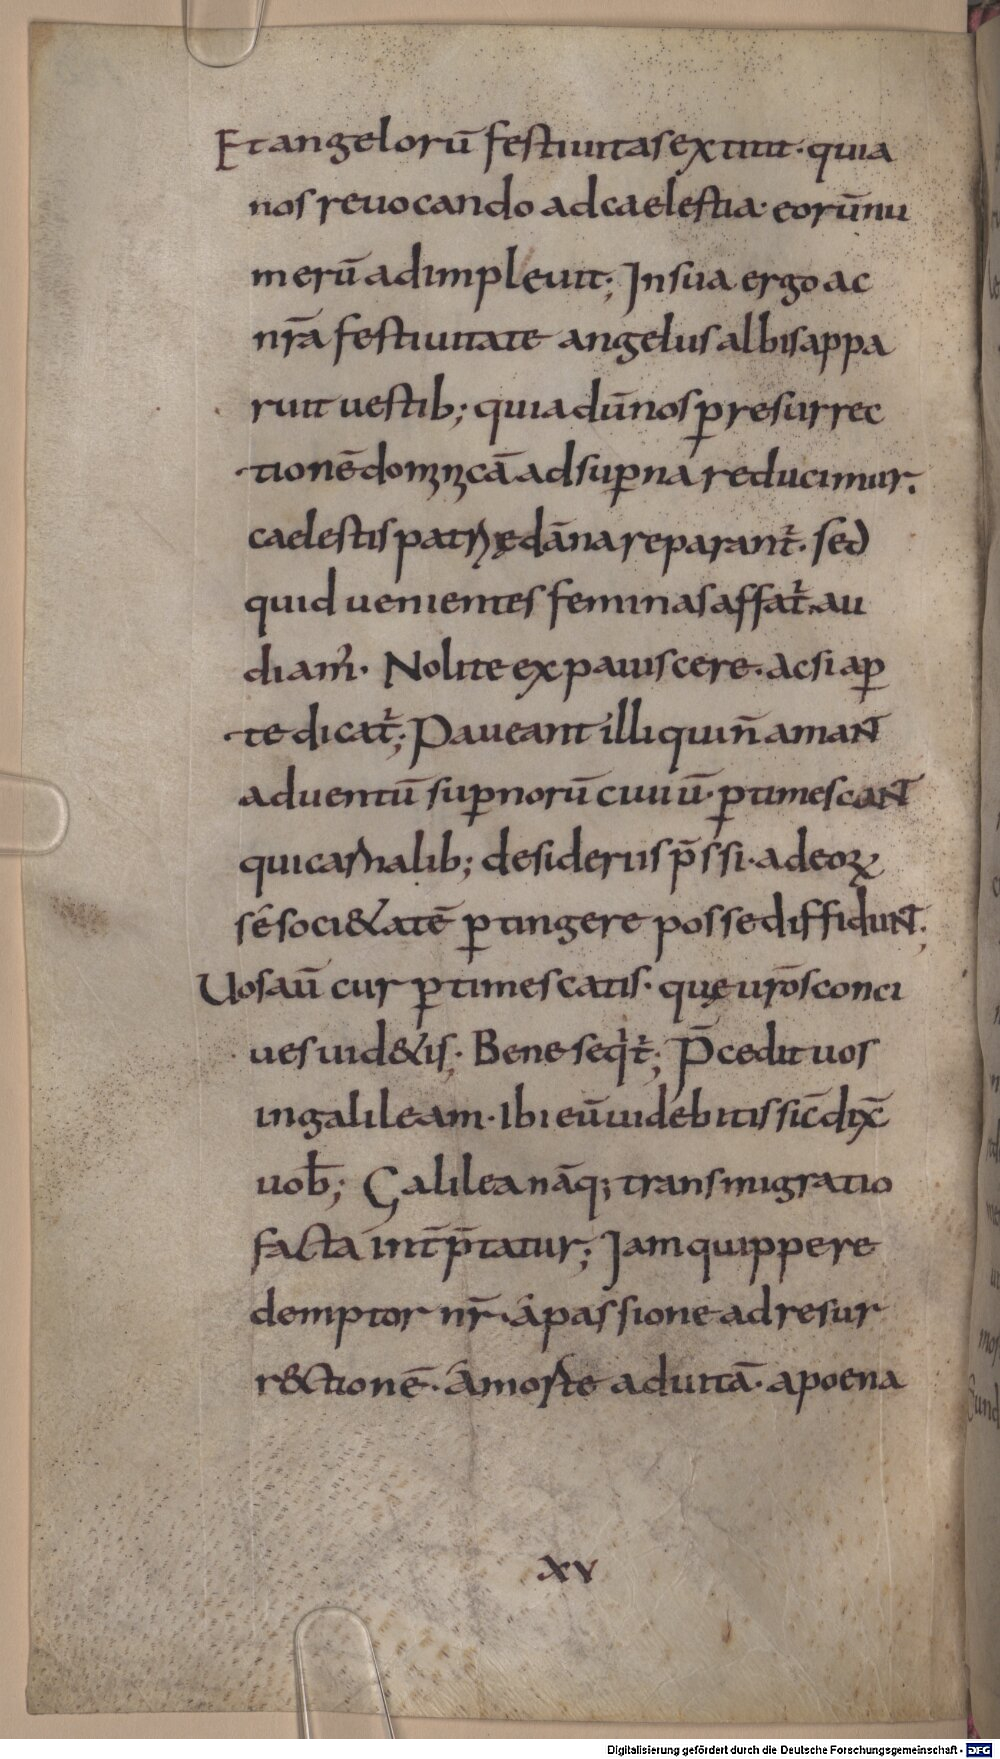 Et angelorū festiuitas extitit · quia
nos reuocando ad caelestia · eorū nu
merū adimpleuit ; In sua ergo ac
nr̄a festiuitate angelus albis appa
ruit uestib; quia dū nos ꝑ resurrec
tionē dominicā ad suꝑna reducimur .
caelestis patrię dāna reparant᷑ . sed
quid uenientes feminas affat᷑ . au
diam᷒ . Nolite expauiscere . ac si aꝑ
te dicat᷑ ; Paueant illi qui n̄ amant
aduentū suꝑnorū ciuiū · ꝑtimescant
qui carnalib; desideriis p̄ssi · ad eoꝝ
sé soci&atē ꝑtingere posse diffidunt ;
Uos aū cur ꝑtimescatis · quę ur̄os conci
ues uid&is ; Bene seqit᷑ ; P̄cedit uos
in galileam · Ibi eū uidebitis sic̄ dix̄
uob̄ ; Galilea nāq; transmigratio
facta int̄p̄tatur ; Iam quippe re
demptor nr̄ · á passione ad resur
r&ctionē · á morte ad uitā · a poena
xv
Digitalisierung gefördert durch die Deutsche Forschungsgemeinschaft - DFG